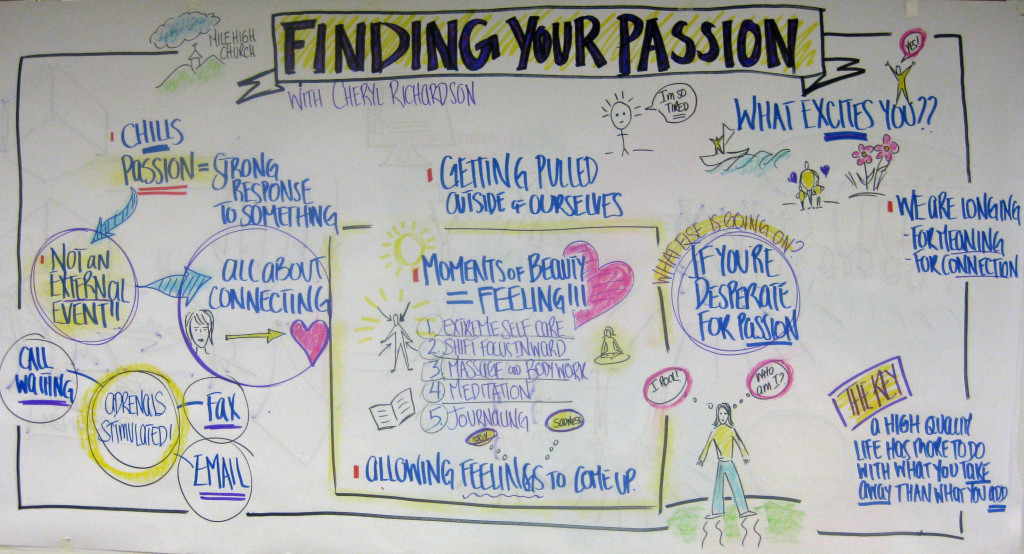 MILE HIGH
CHURCH
FINDING YOUR PASSION
WITH CHERYL RICHARDSON
CHILLS
PASSION = STRONG
RESPONSE
TO SOMETHING
NOT AN
EXTERNAL
EVENT!!
ALL ABOUT
CONNECTING
CALL
WAITING
ADRENALS
STIMULATED!
FAX
EMAIL
I'M SO
TIRED
GETTING PULLED
OUTSIDE OF OURSELVES
MOMENTS OF BEAUTY
= FEELING!!!
1. EXTREME SELF CARE
2. SHIFT FOCUS INWARD
3. MASSAGE AND BODYWORK
4. MEDITATION
5. JOURNALING
JOY
SADNESS
ALLOWING FEELINGS TO COME UP.
YES!
WHAT EXCITES YOU??
WE ARE LONGING
- FOR MEANING
- FOR CONNECTION
WHAT ELSE IS GOING ON?
IF YOU'RE
DESPERATE
FOR PASSION
I ROCK!
WHO
AM I?
THE KEY
A HIGH QUALITY
LIFE HAS MORE TO DO
WITH WHAT YOU TAKE
AWAY THAN WHAT YOU ADD